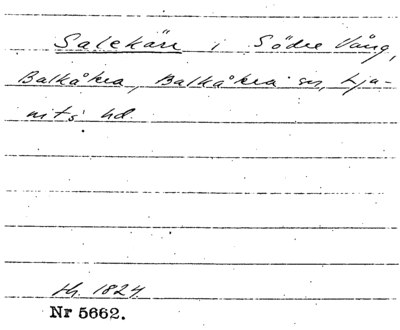 Salekärr i Södre Vång,
Balkåkra, Balkåkra sn, Lju-
nits hd.
H. 1824.
Nr 5662.